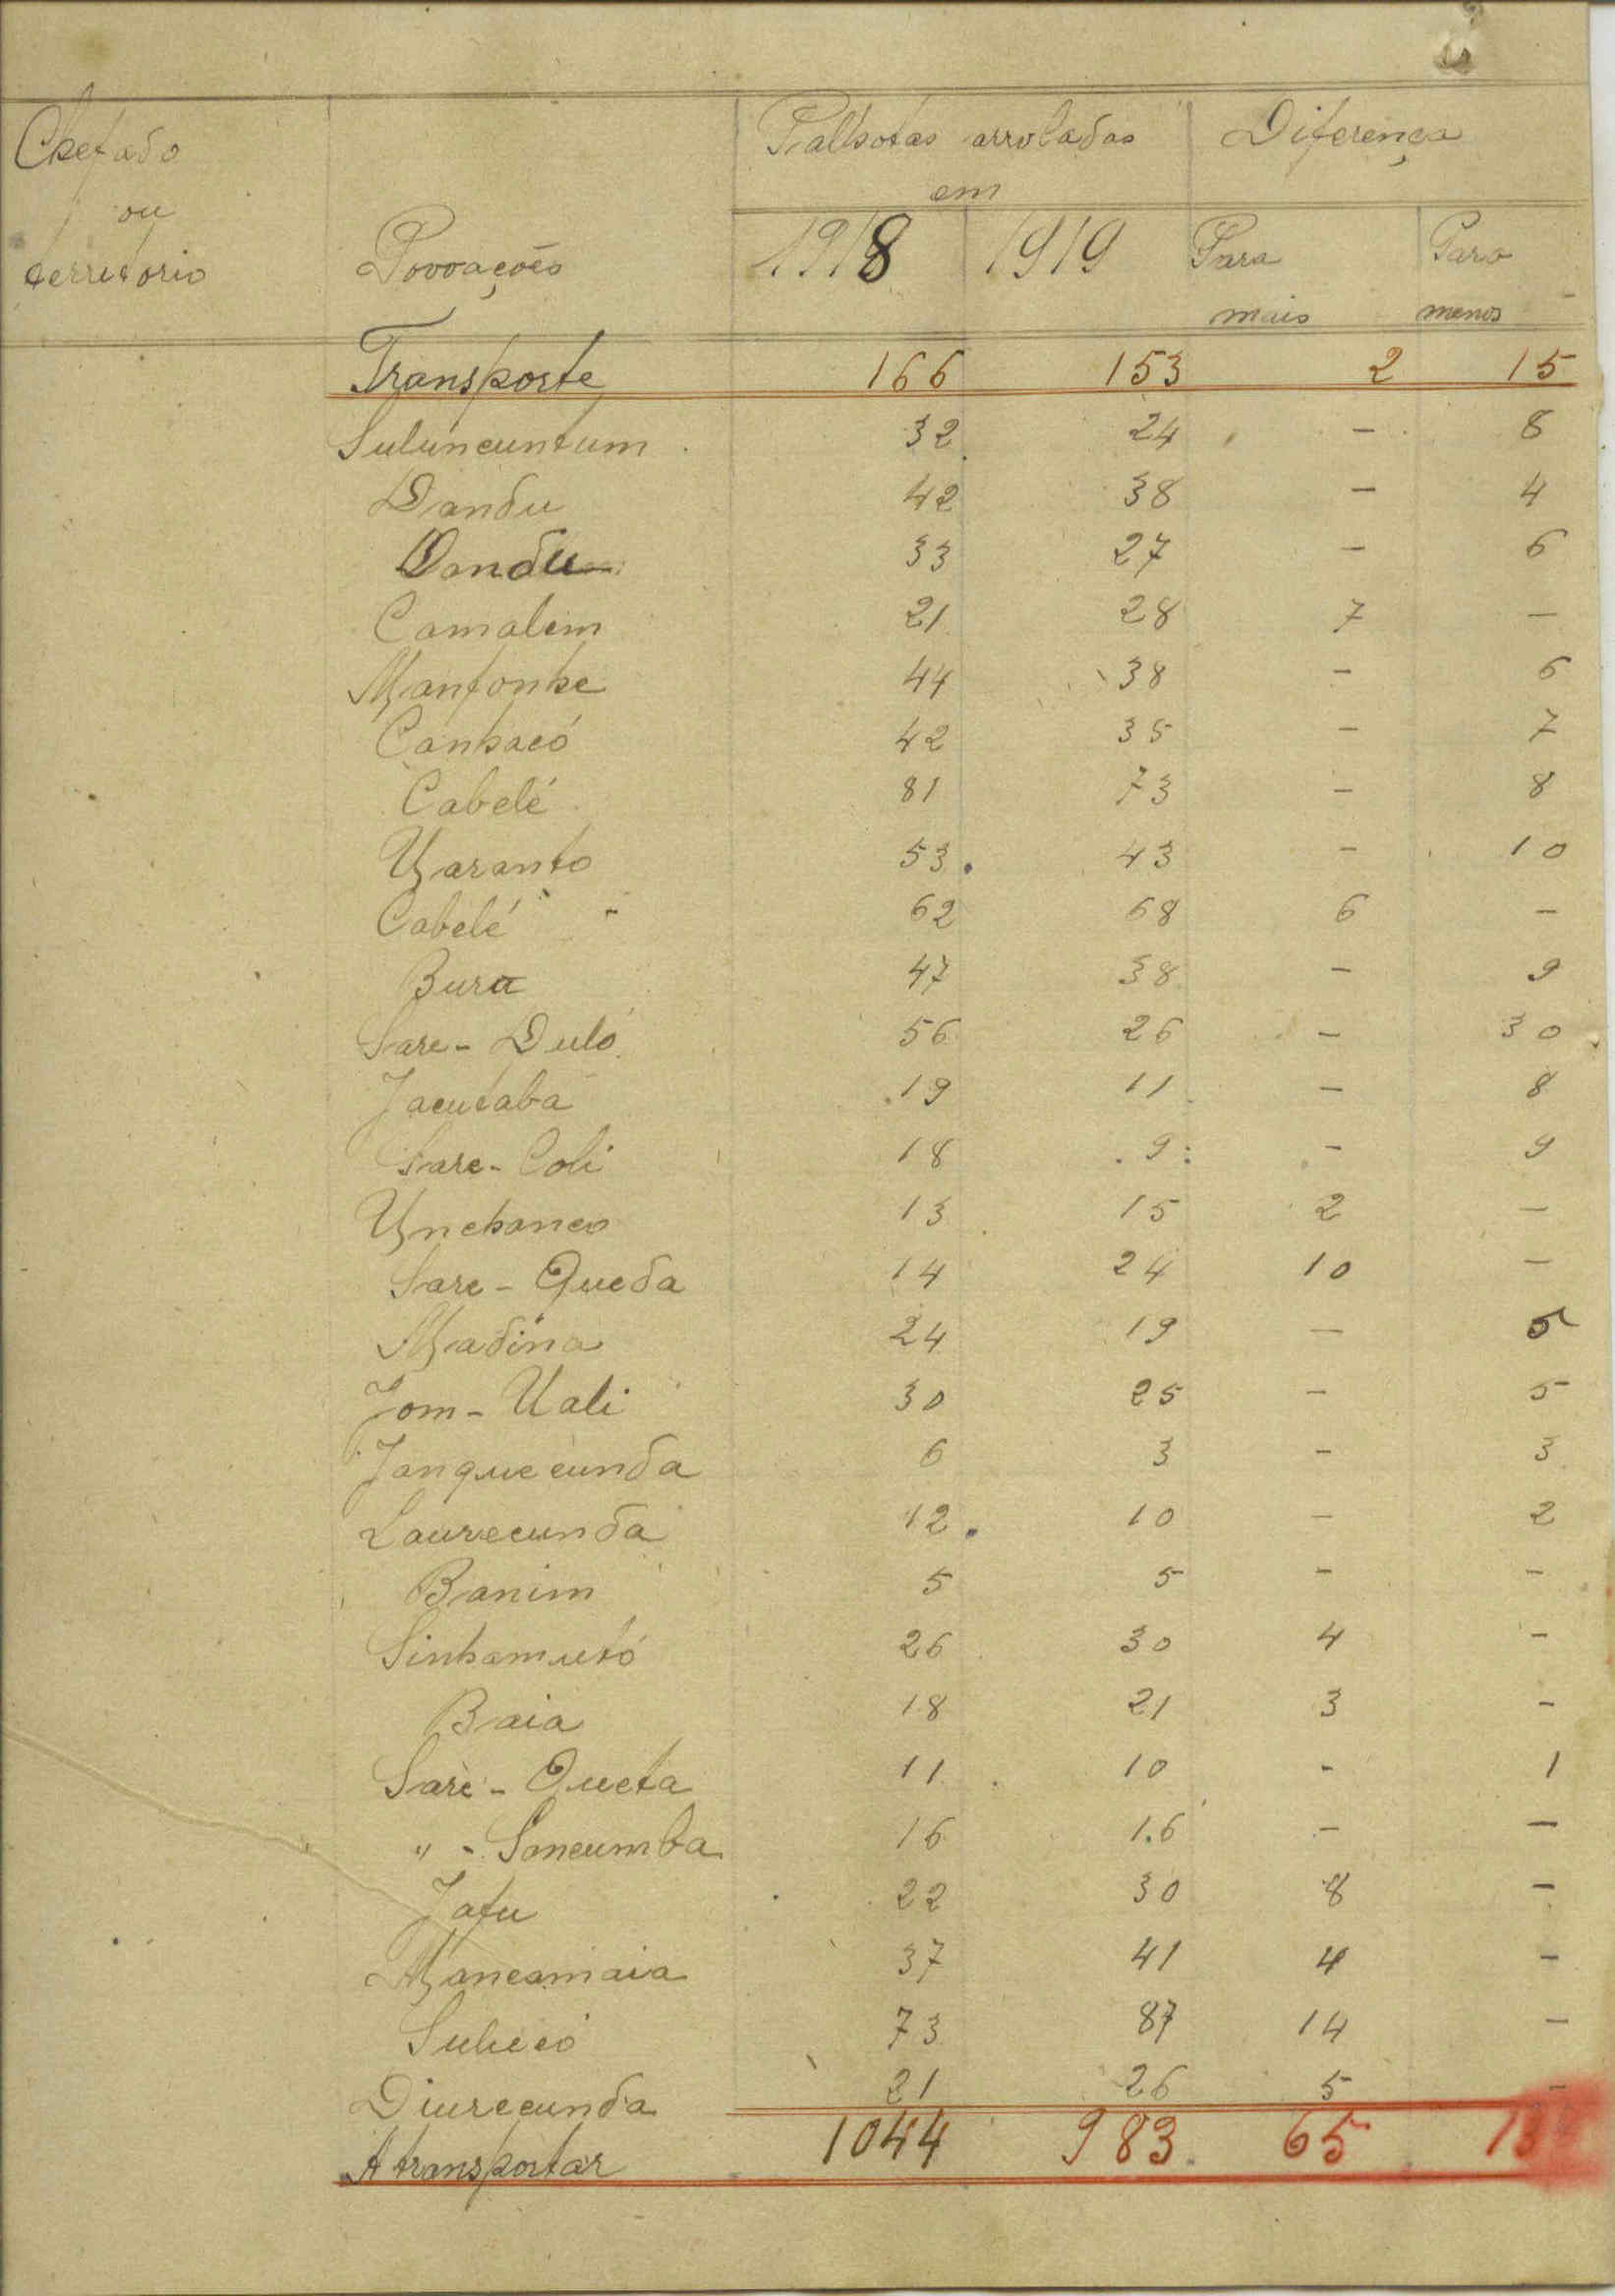 Chefado
ou
território
Povoações
Palhotas arroladas
em
Diferença
1918 1919 Para
mais Para
menos
Transporte 166 153 2 15
Suluncuntum 32 24 - 8
Dandu 42 38 - 4
Dandu 33 27 - 6
Camalem 21 28 7 -
Manfonhe 44 38 - 6
Canhacó 42 35 - 7
Cabelé 81 73 - 8
Uaranto 53 43 - 10
Cabelé " 62 68 6 -
Bura 47 38 - 9
Sare - Duló 56 26 - 30
Jacutaba 19 11 - 8
Sare - Coli 18 9 - 9
Unchanco 13 15 2 -
Sare - Queda 14 24 10 -
Madina 24 19 - 5
Jom - Uali 30 25 - 5
Janquecunda 6 3 - 3
Laurecunda 12 10 - 2
Banim 5 5 - -
Sinhamutó 26 30 4 -
Baia 18 21 3 -
Saré - Queta 11 10 - 1
" - Soncumba 16 16 - -
Jafu 22 30 8 -
Mancamaia 37 41 4 -
Sulucó 73 87 14 -
Diurecunda 21 26 5 -
A transportar 1044 983 65